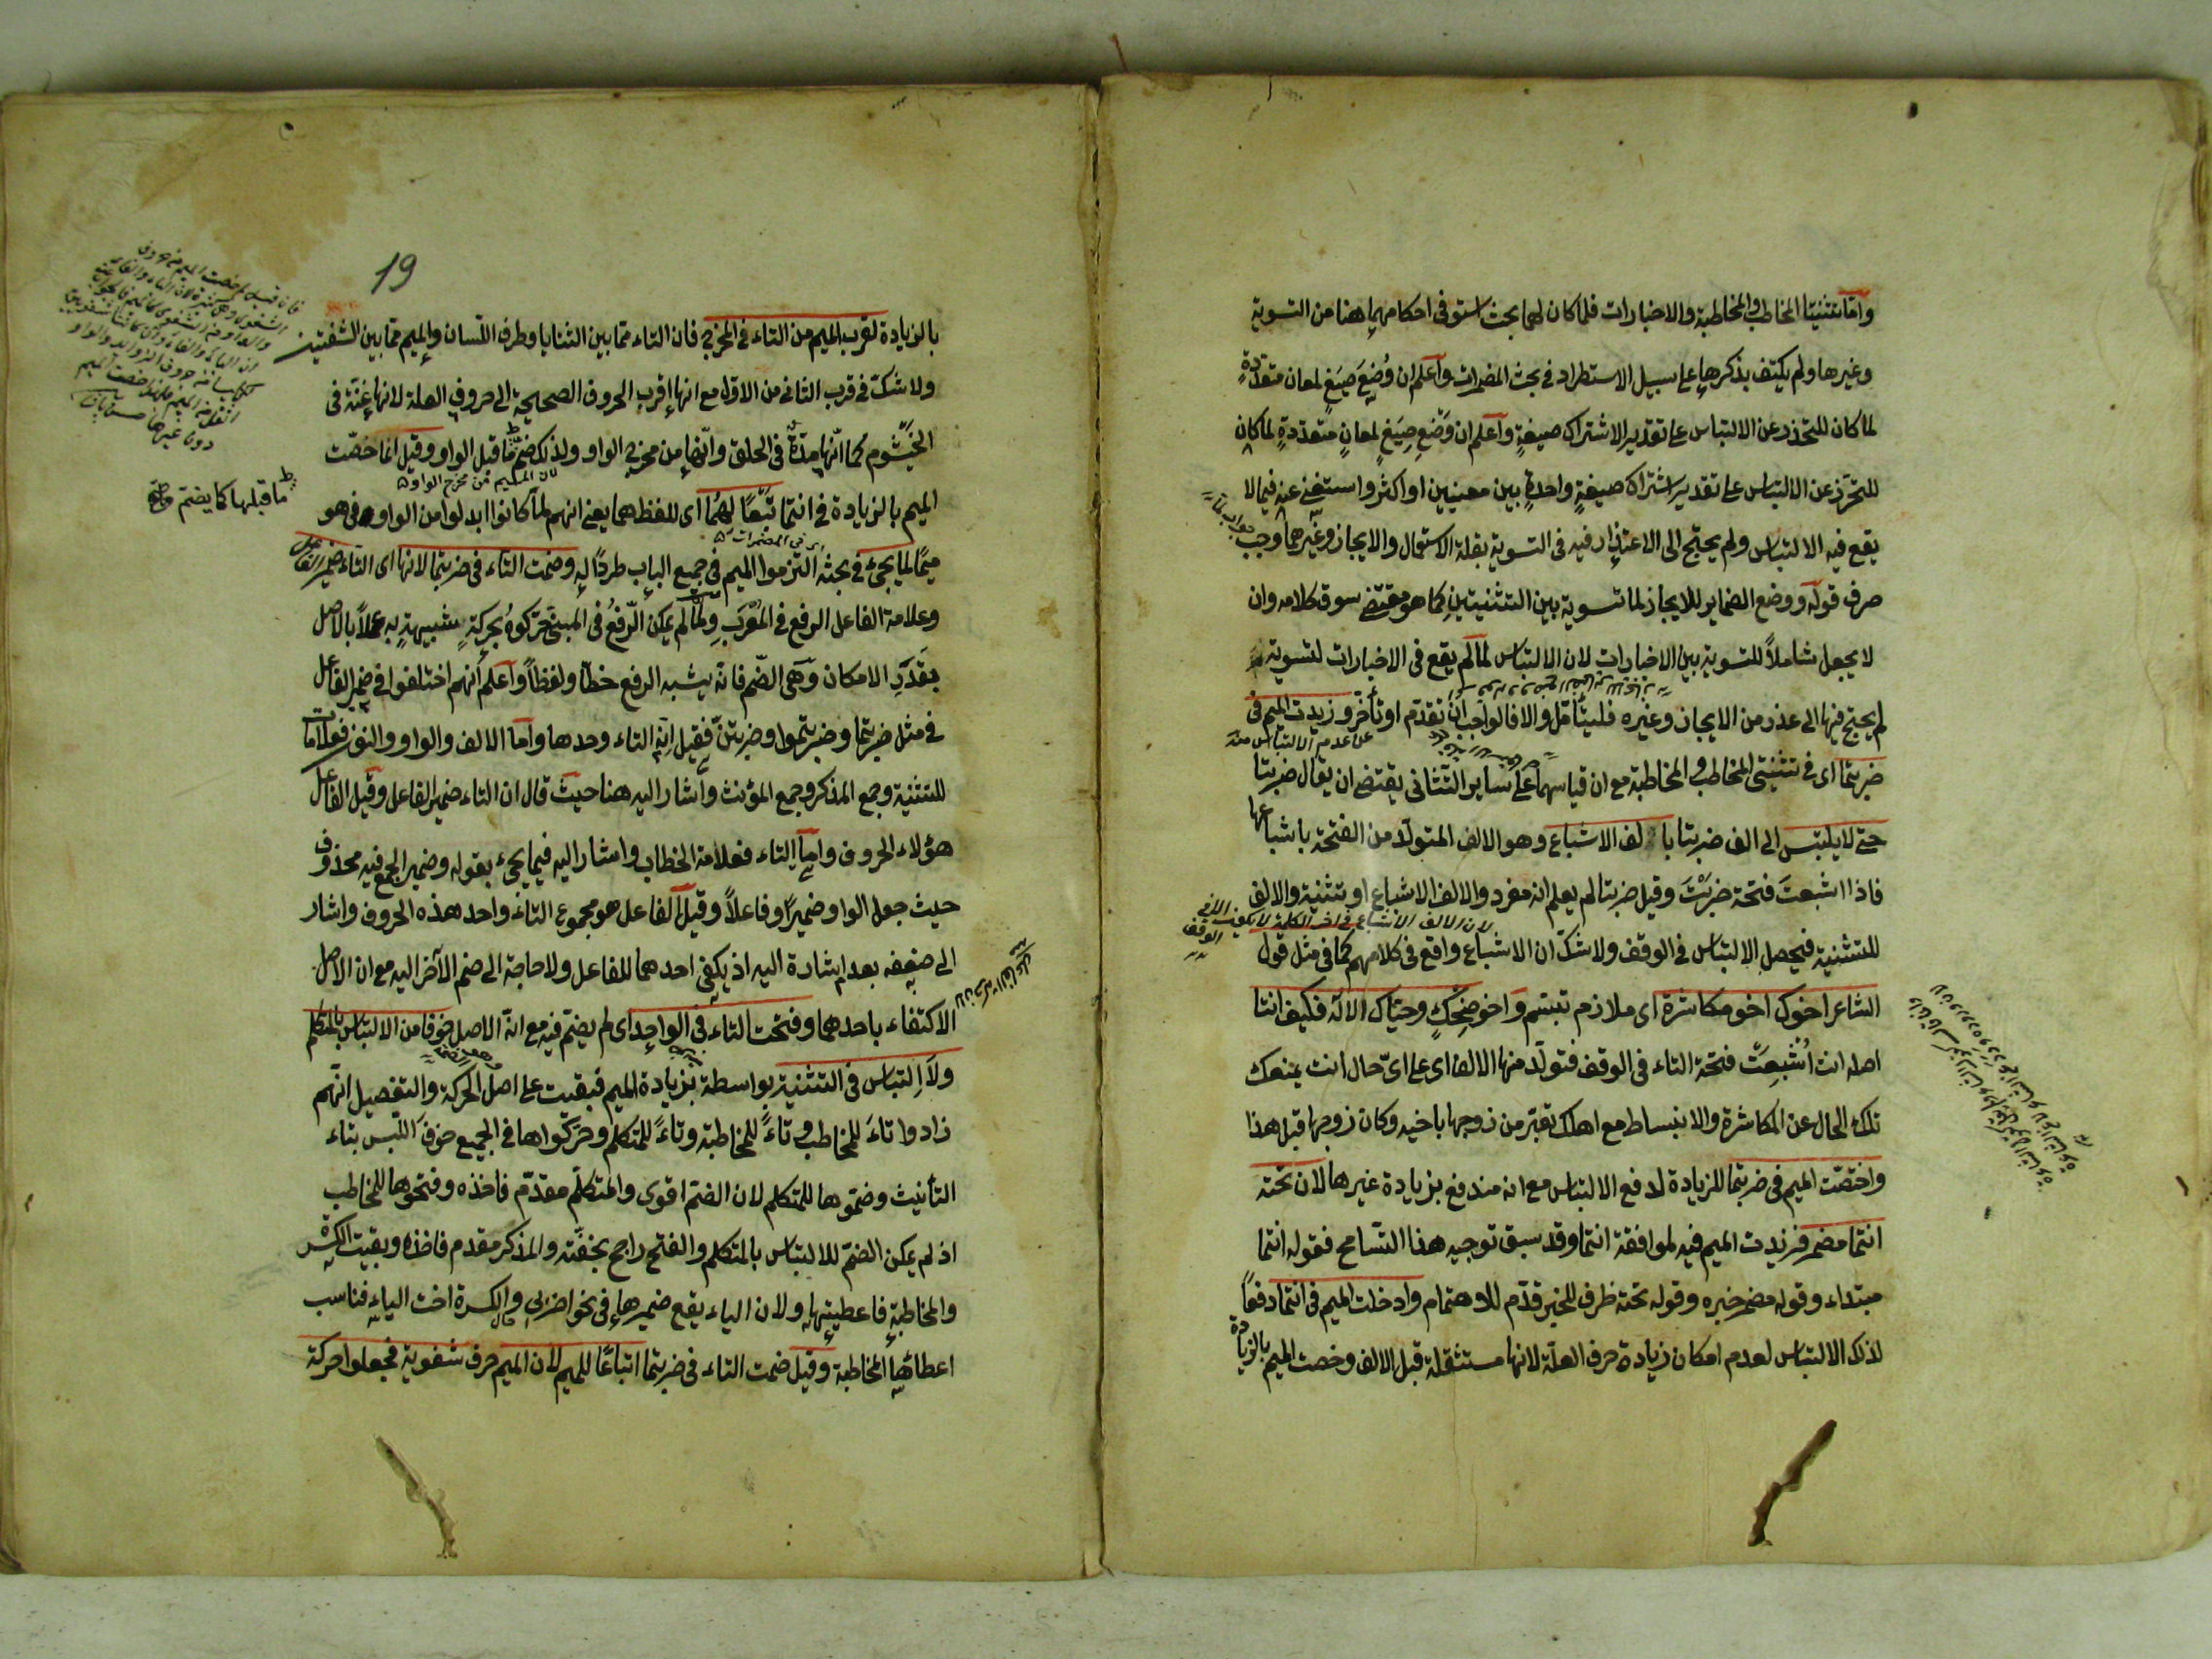 واما تثنيتا المخاطب والمخاطبة والاخبارات فلما كان لهما بحث استوفى احكامهما هنا من التسوية
وغيرها ولم يكتف بذكرها على سبيل الاستطراد فى بحث المضمرات واعلم ان وُضِعَ صِيَغٍ لمعان متعددةٍ
لما كان للتحذر عن الالتباس على تقدير الاشتراك صيغةٍ واعلم ان وَضْعِ صِيَغٍ لمعانٍ متعدّدةٍ لما كان
للتحرّز عن الالتباس على تقدير اشتراك صيغةٍ واحدةٍ بين معنيين او اكثر واستغنى عنه فيما لا
يقع فيه الالتباس ولم يحتج الى الاعتذار فيه فى التسوية بقلة الاستعمال والايجاز وغيرهما وجب
صرف قوله ووضع الضماير للايجاز لما تسوية بين التثنيتين كما هو مقتضى سوق كلامه وان
لا يجعل شاملاً للتسوية بين الاخبارات لان الالتباس لما لم يقع فى الاخبارات لتسوية
لم يحتج فيها الى عذر من الايجاز وغيره فليتأمّل والا فالواجب ان تقدّم او تأخّر وزيدت الميم فى
عن عدم الالتباس منه
ضربتما اى فى تثنيتى المخاطب والمخاطبة مع ان قياسهما على ساير التثنانى يقتضى ان يقال ضربتا
حتى لا يلتبس الى الف ضربتا بالف الاشباع وهو الالف المتولّد من الفتحة باشباعها
فاذا اشبعتَ فتحة ضَرَبْتَ وقيل ضربتا لم يعلم انه مفرد والالف الاشباع او تثنية والالف
لان الالف الاشباع فى اخر الكلمة لا يكون الا فى الوقف
للتثنية فيحصل الالتباس فى الوقف ولا شكّ ان الاشباع واقع فى كلامهم كما فى مثل قول
الشاعر اخوك اخو مكاشرة اى ملازم تبسّم واخو ضِحْكٍ وحيّاك الاله فكيف انتا
اصله انت اُشْبِعَتْ فتحة التاء فى الوقف فتولّد منها الالف اى على اىّ حال انت يمنعك
تلك الحال عن المكاشرة والانبساط مع اهلك تعبّر من زوجها باخيه وكان زوجها قبل هذا
واختصّت الميم فى ضربتما للزيادة لدفع الالتباس مع انه مندفع بزيادة غيرها لان تحته
انتما مضمر فزيدت الميم فيه لموافقة انتما وقد سبق توجيه هذا التسامح فقوله انتما
مبتداء وقوله مضمر خبره وقوله تحته ظرف للخبر قدّم للاهتمام وادخلت الميم فى انتما دفعاً
لذلك الالتباس لعدم امكان زيادة حرف العلّة لانها مستثقلة قبل الالف وخصت الميم بالزيادة
19
بالزيادة لقرب الميم من التاء فى المخرج فان التاء ممّا بين الثنايا وطرف اللسان والميم ممّا بين الشفتين
ولا شكّ فى قرب الثانى من الاول مع انها اقرب الحروف الصحيحة الى حروف العلة لانها غنّة فى
الخيشوم كما انّها مدّة فى الحلق وانّها من مخرج الواو ولذلك ضمّ ما قبل الواو وقيل انما خصّت
ما قبلها كما يضمّ
لان الميم من مخرج الواو
الميم بالزيادة فى انتما تَبَعًا لهُمَا اى للفظ هما يعنى انهم لمّا كانوا ابدلوا من الواو فى هو
اى فى المضمرات
ميمًا لما يجئ فى بحثه التزموا الميم فى جميع الباب طردًا له وضمت التاء فى ضربتما لانها اى التاء ضمير الفاعل
وعلامة الفاعل الرفع فى المُعْرَبِ ولمّا لم يمكن الرّفعُ فى المبنى حَرّكوهُ بحركةٍ شبيهةٍ به عملاً بالاصل
بقَدَرِ الامكان وهى الضّم فانّه يشبه الرفع خطّا ولفظاً واعلم انهم اختلفوا فى ضمير الفاعل
فى مثل ضربتما وضربتموا وضربتنّ فقيل انه التاء وحدها واما الالف والواو والنون فعلامات
للتثنية وجمع المذكر وجمع المؤنث واشار اليه هنا حيث قال ان التاء ضمير الفاعل وقيل الفاعل
هؤلاء الحروف واما التاء فعلامة الخطاب واشار اليه فيما يجئ بقوله وضمير الجمع فيه محذوف
حيث جعل الواو ضميرًا وفاعلاً وقيل الفاعل هو مجموع التاء واحد هذه الحروف واشار
الى ضعفه بعد اشارة اليه اذ يكفى احدهما للفاعل ولا حاجة الى ضم الآخر اليه مع ان الاصل
الاكتفاء باحدهما وفتحت التاء فى الواحد اى لم يضمّ فيه مع انّه الاصل خوفا من الالتباس بالمتكلم
ولا التباس فى التثنية بواسطة بزيادة الميم فبقيت على اصل الحركة والتفصيل انّهم
زادوا تاءً للمخاطب وتاءً للمخاطبة وتاءً للمتكلم وحرّكواها فى الجميع خوف اللبس بتاء
التأنيث وضمّوها للمتكلم لان الضمّ اقوى والمتكلّم مقدّم فاخذه وفتحوها للمخاطب
اذ لم يمكن الضمّ للالتباس بالمتكلم والفتح راجح بخفّته والمذكر مقدم فاخذه وبقيت الكسرة
والمخاطبة فاعطيتها ولان الياء يقع ضميرها فى نحو اضربى والكسرة اخت الياء فناسب
اعطائها المخاطبة وقيل ضمت التاء فى ضربتما اتباعًا للميم لان الميم حرف شفوية فجعلوا حركة